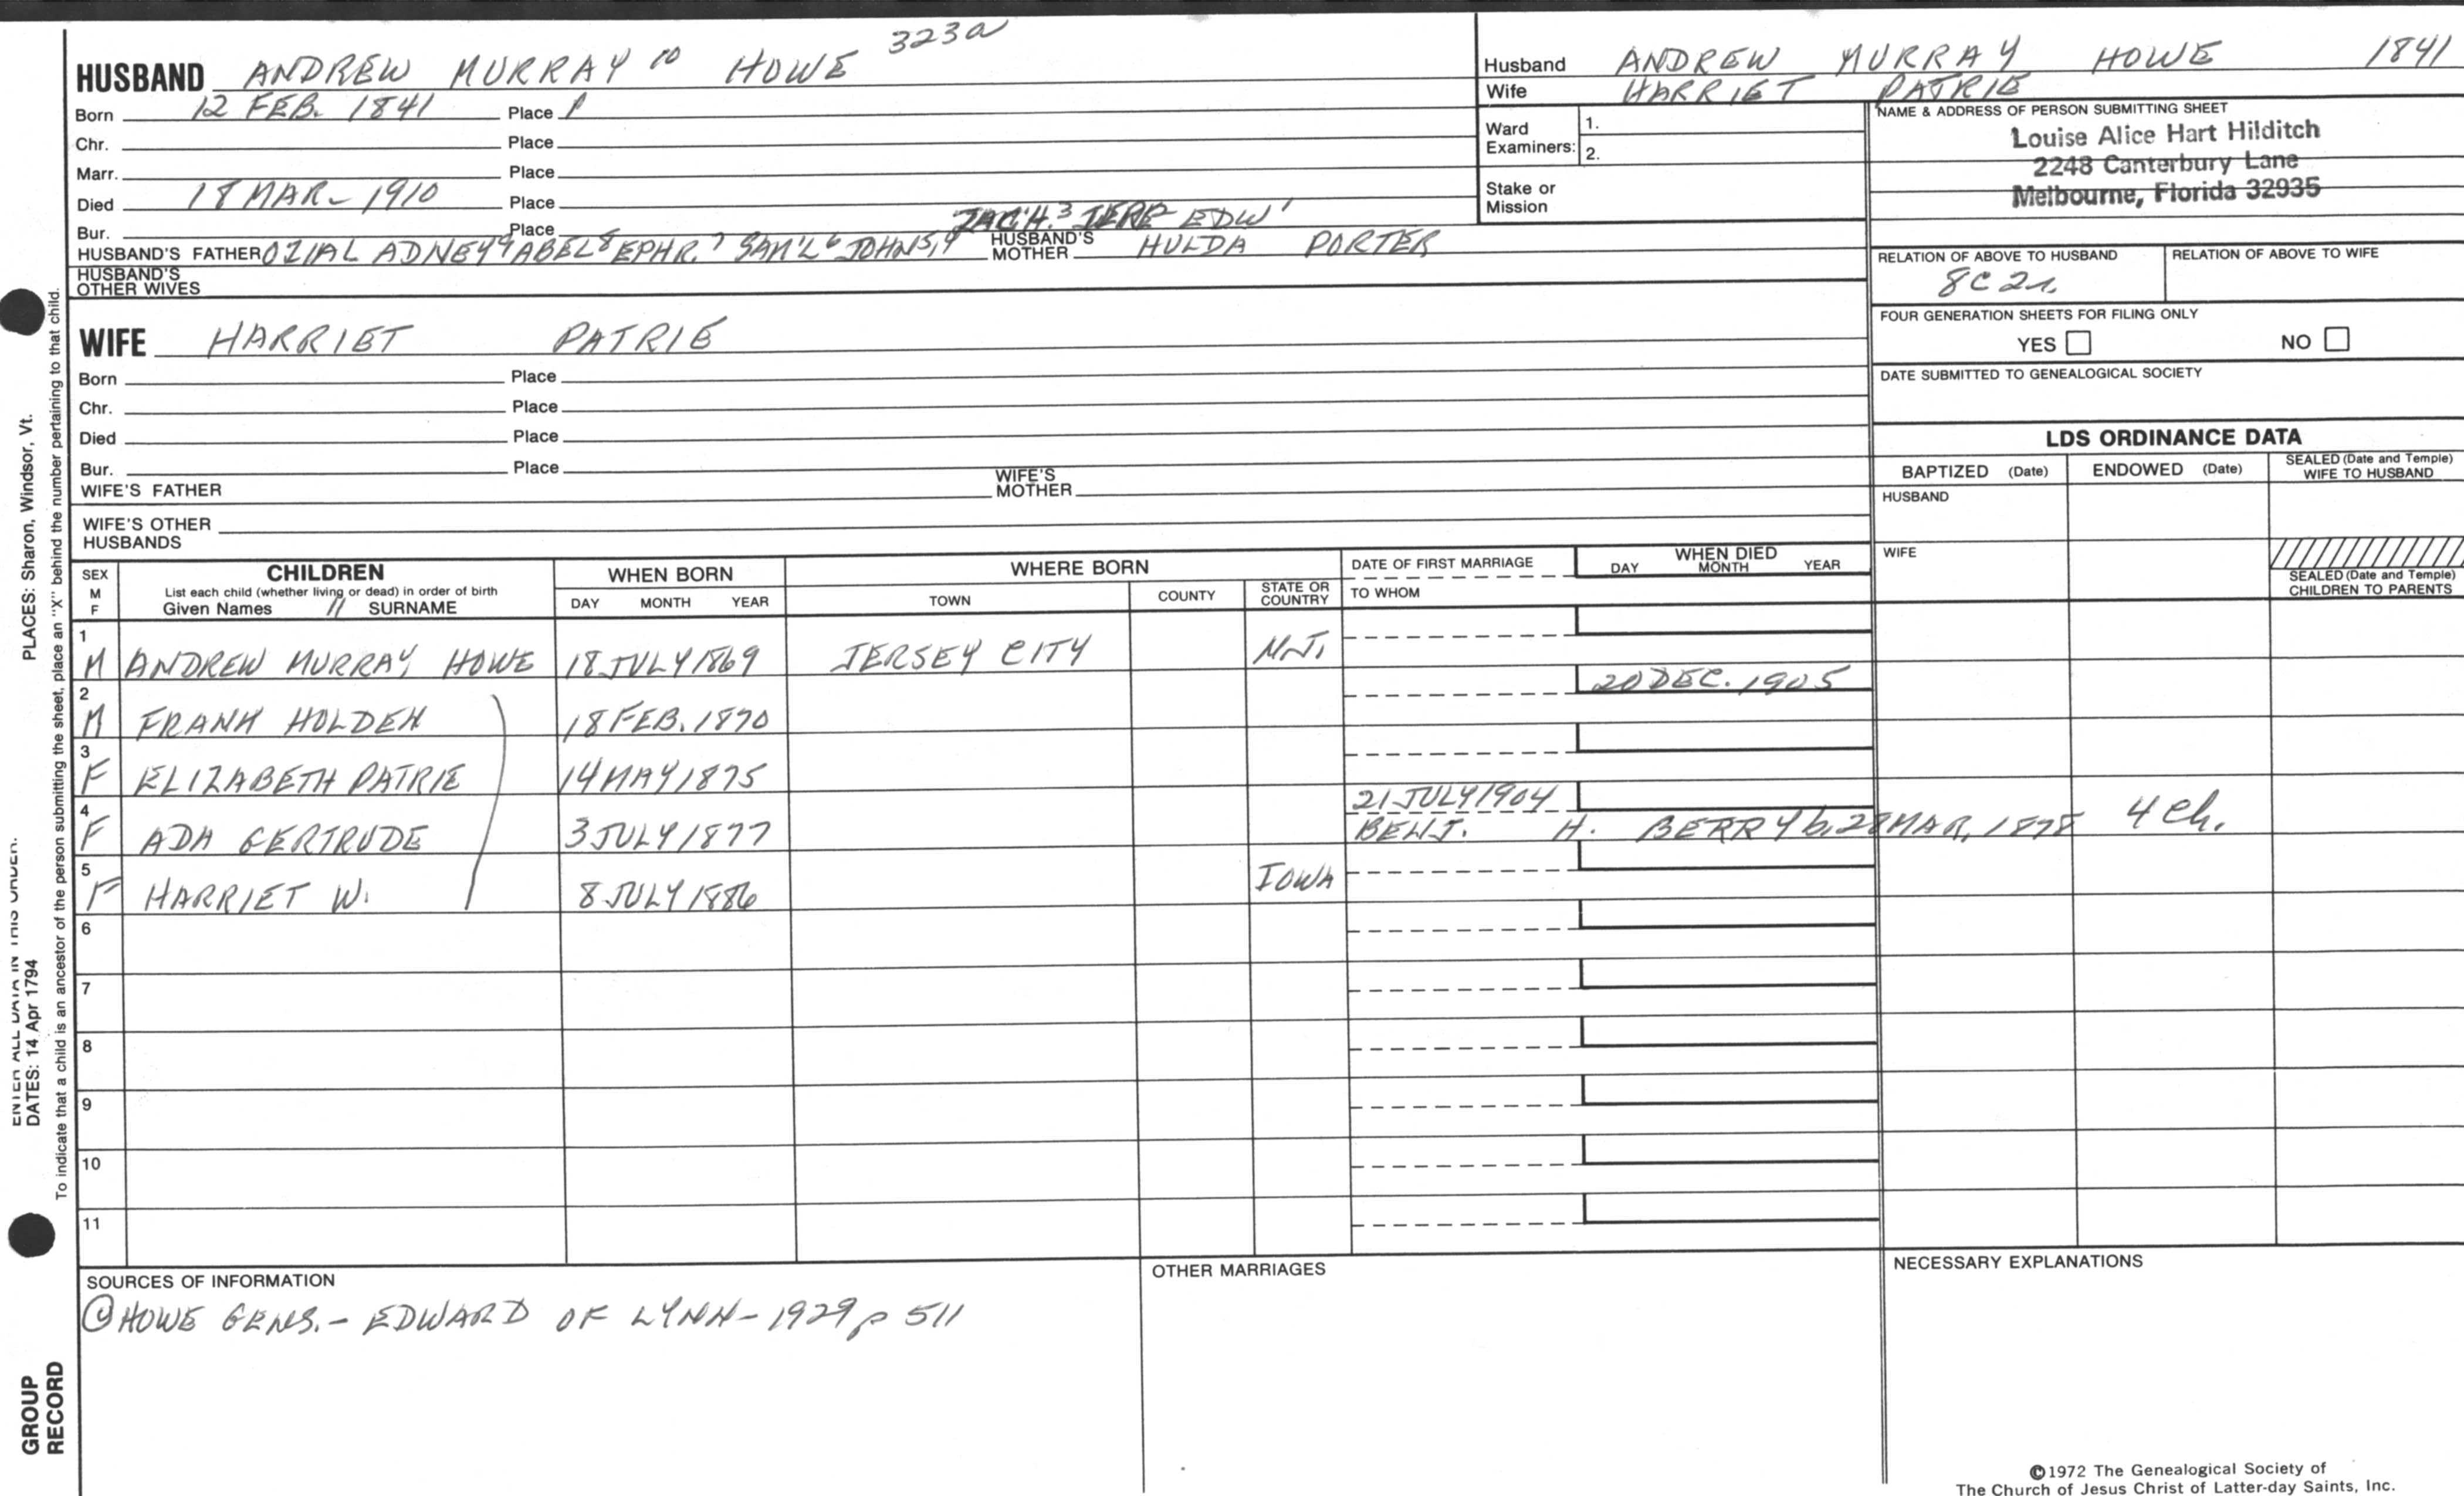 HUSBAND ANDREW MURRAY 10 HOWE 323a
Born 12 FEB. 1841 Place
Chr. Place
Marr. Place
Died 18 MAR - 1910 Place
Bur. Place ZACH. 3 JERE 2 EDW 1
HUSBAND'S FATHER OZIAL ADNEY 9 ABEL 8 EPHR. 7 SAM'L 6 JOHN 5,4 HUSBAND'S MOTHER HULDA PORTER
HUSBAND'S OTHER WIVES
Husband ANDREW MURRAY HOWE 1841
Wife HARRIET PATRIE
Ward Examiners: 1.
2.
Stake or Mission
NAME & ADDRESS OF PERSON SUBMITTING SHEET
Louise Alice Hart Hilditch
2248 Canterbury Lane
Melbourne, Florida 32935
RELATION OF ABOVE TO HUSBAND RELATION OF ABOVE TO WIFE
8C 2r.
FOUR GENERATION SHEETS FOR FILING ONLY
YES NO
DATE SUBMITTED TO GENEALOGICAL SOCIETY
WIFE HARRIET PATRIE
Born Place
Chr. Place
Died Place
Bur. Place
WIFE'S FATHER WIFE'S MOTHER
WIFE'S OTHER HUSBANDS
LDS ORDINANCE DATA
BAPTIZED (Date) ENDOWED (Date) SEALED (Date and Temple) WIFE TO HUSBAND
HUSBAND
WIFE
SEALED (Date and Temple) CHILDREN TO PARENTS
SEX M F
CHILDREN
List each child (whether living or dead) in order of birth
Given Names 11 SURNAME
WHEN BORN
DAY MONTH YEAR
WHERE BORN
TOWN COUNTY STATE OR COUNTRY
DATE OF FIRST MARRIAGE
TO WHOM
WHEN DIED
DAY MONTH YEAR
1 M ANDREW MURRAY HOWE 18 JULY 1869 JERSEY CITY N.J.
2 M FRANK HOLDEN 18 FEB. 1870 20 DEC. 1905
3 F ELIZABETH PATRIE 14 MAY 1875
4 F ADA GERTRUDE 3 JULY 1877 21 JULY 1904
BENJ. H. BERRY b. 28 MAR. 1878 4 ch.
5 F HARRIET W. 8 JULY 1886 IOWA
6
7
8
9
10
11
SOURCES OF INFORMATION
@ HOWE GENS. - EDWARD OF LYNN - 1929 p 511
OTHER MARRIAGES
NECESSARY EXPLANATIONS
©1972 The Genealogical Society of
The Church of Jesus Christ of Latter-day Saints, Inc.
PLACES: Sharon, Windsor, Vt.
ENTER ALL DATA IN THIS ORDER.
DATES: 14 Apr 1794
To indicate that a child is an ancestor of the person submitting the sheet, place an "X" behind the number pertaining to that child.
GROUP
RECORD